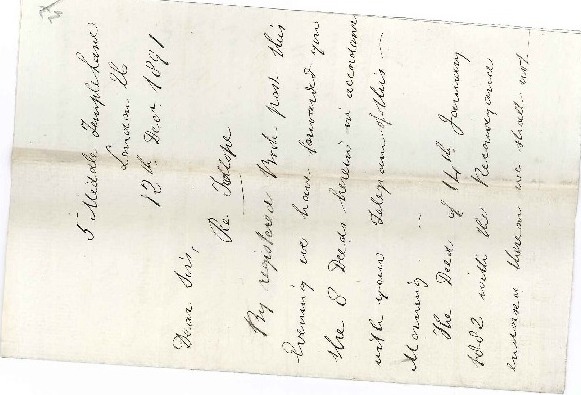 5 Middle Temple Lane
London
12th Decr. 1891
Dear Sirs,
Re Tollope
By registered Book post this
Evening we have forwarded you
the 8 Deeds herein in accordance
with your Telegram of this
Morning
The Deed of 14th January
1882 with the Recognizance
thereon we shall not